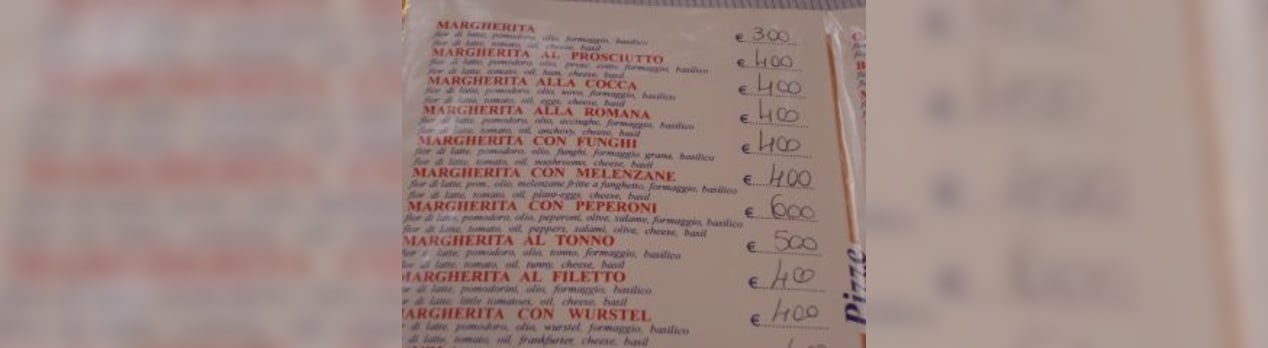 MARGHERITA € 300
fior di latte, pomodoro, olio, formaggio, basilico
fior di latte, tomato, oil, cheese, basil
MARGHERITA AL PROSCIUTTO € 400
fior di latte, pomodoro, olio, prosc. cotto, formaggio, basilico
fior di latte, tomato, oil, ham, cheese, basil
MARGHERITA ALLA COCCA € 400
fior di latte, pomodoro, olio, uovo, formaggio, basilico
fior di latte, tomato, oil, eggs, cheese, basil
MARGHERITA ALLA ROMANA € 400
fior di latte, pomodoro, olio, acciughe, formaggio, basilico
fior di latte, tomato, oil, anchovy, cheese, basil
MARGHERITA CON FUNGHI € 400
fior di latte, pomodoro, olio, funghi, formaggio grana, basilico
fior di latte, tomato, oil, mushrooms, cheese, basil
MARGHERITA CON MELENZANE € 400
fior di latte, pom., olio, melenzane fritte a funghetto, formaggio, basilico
fior di latte, tomato, oil, plant-eggs, cheese, basil
MARGHERITA CON PEPERONI € 600
fior di latte, pomodoro, olio, peperoni, olive, salame, formaggio, basilico
fior di latte, tomato, oil, peppers, salami, olive, cheese, basil
MARGHERITA AL TONNO € 500
fior di latte, pomodoro, olio, tonno, formaggio, basilico
di latte, tomato, oil, tunny, cheese, basil
MARGHERITA AL FILETTO € 400
di latte, pomodorini, olio, formaggio, basilico
di latte, little tomatoes, oil, cheese, basil
MARGHERITA CON WURSTEL € 400
di latte, pomodoro, olio, wurstel, formaggio, basilico
di latte, tomato, oil, frankfurter, cheese, basil
Pizze